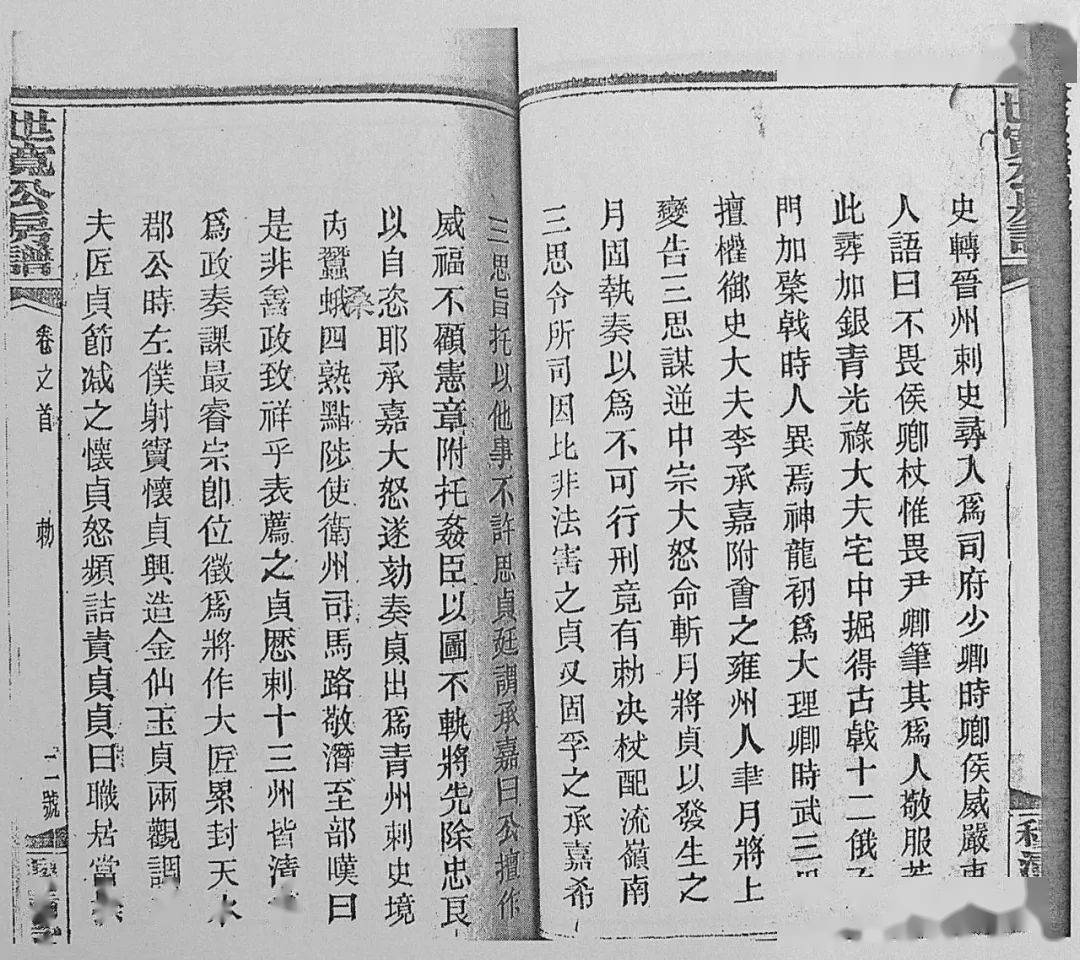 史轉晉州刺史尋入爲司府少卿時卿侯威嚴
人語曰不畏侯卿杖惟畏尹卿筆其爲人敬服
此尋加銀青光祿大夫宅中掘得古戟十二俄
門加棨戟時人異焉神龍初爲大理卿時武三
擅權御史大夫李承嘉附會之雍州人韋月將上
變告三思謀逆中宗大怒命斬月將貞以發生之
月固執奏以爲不可行刑竟有勑决杖配流嶺南
三思令所司因比非法害之貞又固爭之承嘉希
三思旨托以他事不許思貞廷謂承嘉曰公擅作
威福不顧憲章附托姦臣以圖不軌將先除忠良
以自恣耶承嘉大怒遂劾奏貞出爲青州刺史境
內蠶蛾四熟點陟使衛州司馬路敬潛至部嘆曰
桑
是非善政致祥乎表薦之貞歷刺十三州皆清
爲政奏課最睿宗卽位徵爲將作大匠累封天水
郡公時左僕射竇懷貞興造金仙玉貞兩觀調
夫匠貞節减之懷貞怒頻詰責貞貞曰職居當
世寬公房譜
卷之首
勅
二號